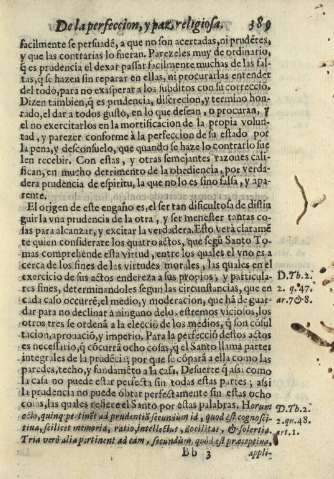 De la perfeccion, y paz religiosa. 389
facilmente se persuadē, a que no son acertadas, ni prudētes,
y que las contrarias lo fueran. Parezeles muy de ordinario,
q̄ es prudencia el dexar passar facilmente muchas de las fal-
tas, q̄ se hazen sin reparar en ellas, ni procurarlas entender
del todo, para no exasperar a los subditos con su correcciō.
Dizen tambien, q̄ es prudencia, discrecion, y termino hon-
rado, el dar a todos gusto, en lo que desean, o procurā, y
el no exercitarlos en la mortificacion de la propia volun-
tad, y parezer conforme à la perfeccion de su estado por
la pena, y desconsuelo, que quando se haze lo contrario sue
len recebir. Con estas, y otras semejantes razones cali-
fican, en mucho detrimento de la obediencia, por verda-
dera prudencia de espiritu, la que no lo es sino falsa, y apa-
rente.
El origen de este engaño es, el ser tan dificultosa de distin
guir la vna prudencia de la otra, y ser menester tantas co-
sas para alcanzar, y excitar la verdadera. Esto verà claramē
te quien considerare los quatro actos, que segū Santo To-
mas comprehende esta virtud, entre los quales el vno es a
cerca de los fines de las virtudes morales, las quales en el
exercicio de sus actos endereza a sus propios, y particula-
res fines, determinandoles segun las circunstancias, que en
cada caso occurrē, el medio, y moderacion, que hà de guar-
dar para no declinar a ninguno de lo. estremos viciosos, los
otros tres se ordenā a la elecciō de los medios, q̄ son cōsul
tacion, aprouaciō, y imperio. Para la perfecciō destos actos
es necessario, q̄ cōcurrā ocho cosas, q̄ el Santo llama partes
integrales de la prudēcia; por que se cōparā a ella como las
paredes, techo, y fundamēto a la casa. Desuerte q̄ asi como
la casa no puede estar perfecta sin todas estas partes; asi
la prudencia no puede obrar perfectamente sin estas ocho
cosas, las quales refiere el Santo por estas palabras. Horum
octo, quinq; pertinēt ad prudentiā secundum id, quod est cognosci-
tiua, scilicet memoria, ratio, intellectus, docilitas, & solertia.
Tria verò alia pertinent ad eam, secundum quod est præceptiua,
Bb 3 appli-
D. Th. 2.
2. q. 47.
ar. 7 & 8.
D. Th. 2.
2. qn. 48.
art. 1.